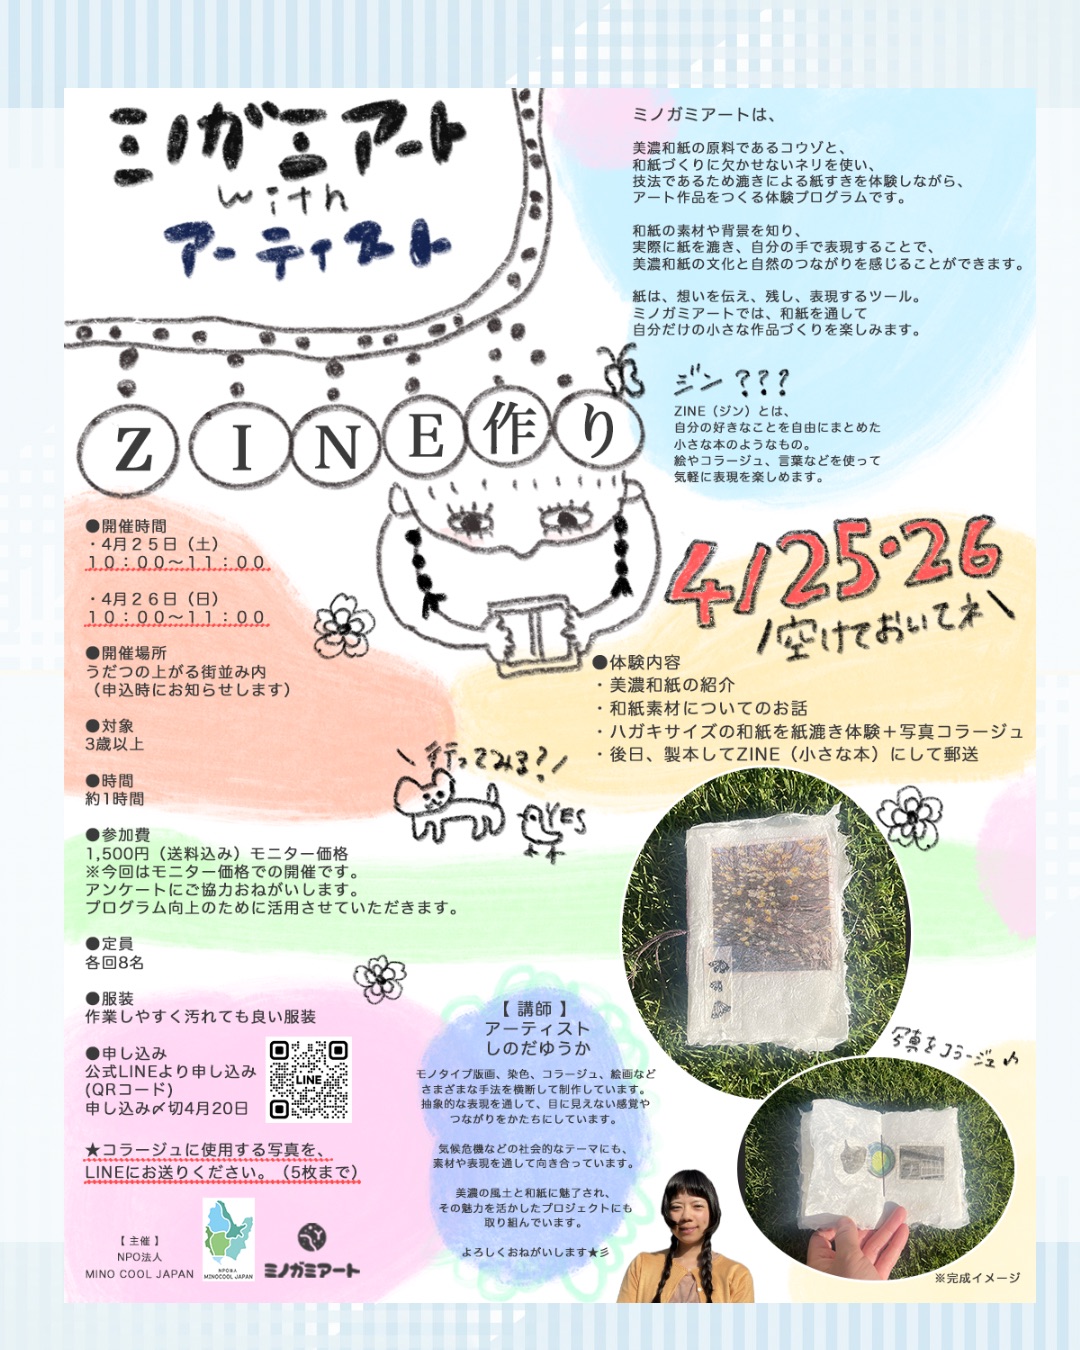 ミノガミアート
with
アーティスト
ZINE作り
ミノガミアートは、
美濃和紙の原料であるコウゾと、
和紙づくりに欠かせないネリを使い、
技法であるため漉きによる紙すきを体験しながら、
アート作品をつくる体験プログラムです。
和紙の素材や背景を知り、
実際に紙を漉き、自分の手で表現することで、
美濃和紙の文化と自然のつながりを感じることができます。
紙は、想いを伝え、残し、表現するツール。
ミノガミアートでは、和紙を通して
自分だけの小さな作品づくりを楽しみます。
ジン???
ZINE（ジン）とは、
自分の好きなことを自由にまとめた
小さな本のようなもの。
絵やコラージュ、言葉などを使って
気軽に表現を楽しめます。
4/25・26
空けておいてネ
●開催時間
・4月２５日（土）
１０：００〜１１：００
・4月２６日（日）
１０：００〜１１：００
●開催場所
うだつの上がる街並み内
（申込時にお知らせします）
●対象
3歳以上
●時間
約1時間
●参加費
1,500円（送料込み）モニター価格
※今回はモニター価格での開催です。
アンケートにご協力おねがいします。
プログラム向上のために活用させていただきます。
●定員
各回8名
●服装
作業しやすく汚れても良い服装
●申し込み
公式LINEより申し込み
(QRコード)
申し込み〆切4月20日
LINE
★コラージュに使用する写真を、
LINEにお送りください。（5枚まで）
【 主催 】
NPO法人
MINO COOL JAPAN
NPO法人
MINOCOOL JAPAN
ミノガミアート
●体験内容
・美濃和紙の紹介
・和紙素材についてのお話
・ハガキサイズの和紙を紙漉き体験＋写真コラージュ
・後日、製本してZINE（小さな本）にして郵送
行ってみる?
YES
【 講師 】
アーティスト
しのだゆうか
モノタイプ版画、染色、コラージュ、絵画など
さまざまな手法を横断して制作しています。
抽象的な表現を通して、目に見えない感覚や
つながりをかたちにしています。
気候危機などの社会的なテーマにも、
素材や表現を通して向き合っています。
美濃の風土と和紙に魅了され、
その魅力を活かしたプロジェクトにも
取り組んでいます。
よろしくおねがいします★彡
写真をコラージュ♪
※完成イメージ